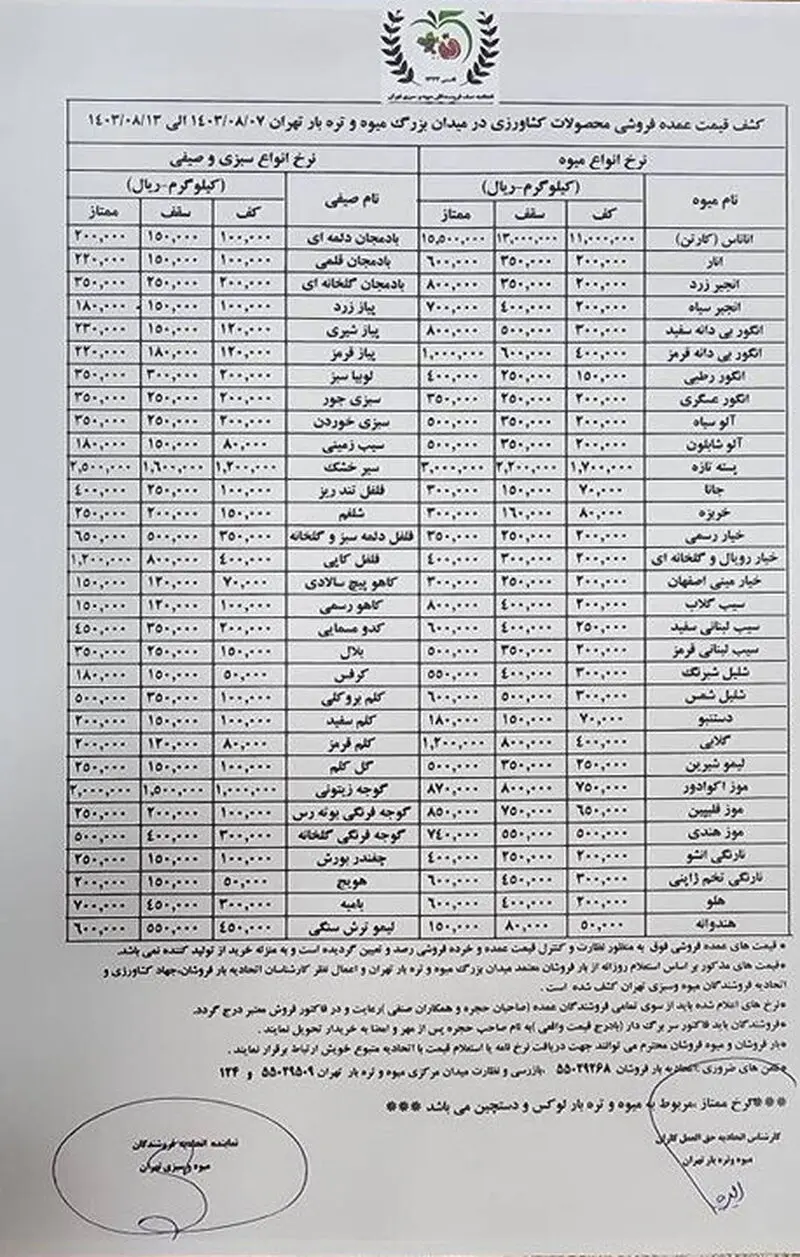 تاسیس ۱۳۲۲
اتحادیه صنف فروشندگان میوه و سبزی تهران
کشف قیمت عمده فروشی محصولات کشاورزی در میدان بزرگ میوه و تره بار تهران ۱۴۰۳/۰۸/۰۷ الی ۱۴۰۳/۰۸/۱۳
نرخ انواع میوه نرخ انواع سبزی و صیفی
نام میوه (کیلوگرم-ریال) نام صیفی (کیلوگرم-ریال)
کف سقف ممتاز کف سقف ممتاز
اناناس (کارتن) ۱۱,۰۰۰,۰۰۰ ۱۳,۰۰۰,۰۰۰ ۱۵,۵۰۰,۰۰۰ بادمجان دلمه ای ۱۰۰,۰۰۰ ۱۵۰,۰۰۰ ۲۰۰,۰۰۰
انار ۲۰۰,۰۰۰ ۳۵۰,۰۰۰ ۶۰۰,۰۰۰ بادمجان قلمی ۱۰۰,۰۰۰ ۱۵۰,۰۰۰ ۲۲۰,۰۰۰
انجیر زرد ۲۰۰,۰۰۰ ۳۵۰,۰۰۰ ۸۰۰,۰۰۰ بادمجان گلخانه ای ۲۰۰,۰۰۰ ۲۵۰,۰۰۰ ۳۵۰,۰۰۰
انجیر سیاه ۲۰۰,۰۰۰ ۴۰۰,۰۰۰ ۷۰۰,۰۰۰ پیاز زرد ۱۰۰,۰۰۰ ۱۵۰,۰۰۰ ۱۸۰,۰۰۰
انگور بی دانه سفید ۳۰۰,۰۰۰ ۵۰۰,۰۰۰ ۸۰۰,۰۰۰ پیاز شیری ۱۲۰,۰۰۰ ۱۵۰,۰۰۰ ۲۳۰,۰۰۰
انگور بی دانه قرمز ۴۰۰,۰۰۰ ۶۰۰,۰۰۰ ۱,۰۰۰,۰۰۰ پیاز قرمز ۱۲۰,۰۰۰ ۱۸۰,۰۰۰ ۲۲۰,۰۰۰
انگور رطبی ۱۵۰,۰۰۰ ۲۵۰,۰۰۰ ۴۰۰,۰۰۰ لوبیا سبز ۲۰۰,۰۰۰ ۳۰۰,۰۰۰ ۳۵۰,۰۰۰
انگور عسگری ۲۰۰,۰۰۰ ۲۵۰,۰۰۰ ۳۵۰,۰۰۰ سبزی جور ۲۰۰,۰۰۰ ۲۵۰,۰۰۰ ۳۵۰,۰۰۰
آلو سیاه ۲۰۰,۰۰۰ ۳۵۰,۰۰۰ ۵۰۰,۰۰۰ سبزی خوردن ۲۰۰,۰۰۰ ۲۵۰,۰۰۰ ۳۵۰,۰۰۰
آلو شابلون ۲۰۰,۰۰۰ ۳۵۰,۰۰۰ ۵۰۰,۰۰۰ سیب زمینی ۸۰,۰۰۰ ۱۵۰,۰۰۰ ۱۸۰,۰۰۰
پسته تازه ۱,۷۰۰,۰۰۰ ۲,۲۰۰,۰۰۰ ۳,۰۰۰,۰۰۰ سیر خشک ۱,۲۰۰,۰۰۰ ۱,۶۰۰,۰۰۰ ۲,۵۰۰,۰۰۰
جانا ۷۰,۰۰۰ ۱۵۰,۰۰۰ ۳۰۰,۰۰۰ فلفل تند ریز ۱۰۰,۰۰۰ ۲۵۰,۰۰۰ ۴۰۰,۰۰۰
خربزه ۸۰,۰۰۰ ۱۶۰,۰۰۰ ۳۰۰,۰۰۰ شلغم ۱۵۰,۰۰۰ ۲۰۰,۰۰۰ ۲۵۰,۰۰۰
خیار رسمی ۲۰۰,۰۰۰ ۲۵۰,۰۰۰ ۳۵۰,۰۰۰ فلفل دلمه سبز و گلخانه ۳۵۰,۰۰۰ ۵۰۰,۰۰۰ ۶۵۰,۰۰۰
خیار رویال و گلخانه ای ۲۰۰,۰۰۰ ۳۰۰,۰۰۰ ۴۰۰,۰۰۰ فلفل کاپی ۴۰۰,۰۰۰ ۸۰۰,۰۰۰ ۱,۲۰۰,۰۰۰
خیار مینی اصفهان ۲۰۰,۰۰۰ ۲۵۰,۰۰۰ ۳۰۰,۰۰۰ کاهو پیچ سالادی ۷۰,۰۰۰ ۱۲۰,۰۰۰ ۱۵۰,۰۰۰
سیب گلاب ۲۰۰,۰۰۰ ۴۰۰,۰۰۰ ۸۰۰,۰۰۰ کاهو رسمی ۱۰۰,۰۰۰ ۱۲۰,۰۰۰ ۱۵۰,۰۰۰
سیب لبنانی سفید ۲۵۰,۰۰۰ ۴۰۰,۰۰۰ ۶۰۰,۰۰۰ کدو مسمایی ۲۰۰,۰۰۰ ۳۵۰,۰۰۰ ۴۵۰,۰۰۰
سیب لبنانی قرمز ۲۰۰,۰۰۰ ۳۵۰,۰۰۰ ۵۰۰,۰۰۰ بلال ۱۵۰,۰۰۰ ۲۵۰,۰۰۰ ۳۵۰,۰۰۰
شلیل شبرنگ ۳۰۰,۰۰۰ ۴۰۰,۰۰۰ ۵۵۰,۰۰۰ کرفس ۵۰,۰۰۰ ۱۵۰,۰۰۰ ۱۸۰,۰۰۰
شلیل شمس ۳۰۰,۰۰۰ ۵۰۰,۰۰۰ ۶۰۰,۰۰۰ کلم بروکلی ۱۰۰,۰۰۰ ۳۵۰,۰۰۰ ۵۰۰,۰۰۰
دستنبو ۷۰,۰۰۰ ۱۵۰,۰۰۰ ۱۸۰,۰۰۰ کلم سفید ۱۰۰,۰۰۰ ۱۵۰,۰۰۰ ۲۰۰,۰۰۰
گلابی ۴۰۰,۰۰۰ ۸۰۰,۰۰۰ ۱,۲۰۰,۰۰۰ کلم قرمز ۸۰,۰۰۰ ۱۲۰,۰۰۰ ۲۰۰,۰۰۰
لیمو شیرین ۲۵۰,۰۰۰ ۳۵۰,۰۰۰ ۵۰۰,۰۰۰ گل کلم ۱۰۰,۰۰۰ ۱۵۰,۰۰۰ ۲۵۰,۰۰۰
موز اکوادور ۷۵۰,۰۰۰ ۸۰۰,۰۰۰ ۸۷۰,۰۰۰ گوجه زیتونی ۱,۰۰۰,۰۰۰ ۱,۵۰۰,۰۰۰ ۲,۰۰۰,۰۰۰
موز فلیپین ۶۵۰,۰۰۰ ۷۵۰,۰۰۰ ۸۵۰,۰۰۰ گوجه فرنگی بوته رس ۱۰۰,۰۰۰ ۲۰۰,۰۰۰ ۲۵۰,۰۰۰
موز هندی ۵۰۰,۰۰۰ ۵۵۰,۰۰۰ ۷۴۰,۰۰۰ گوجه فرنگی گلخانه ۳۰۰,۰۰۰ ۴۰۰,۰۰۰ ۵۰۰,۰۰۰
نارنگی انشو ۲۰۰,۰۰۰ ۲۵۰,۰۰۰ ۴۰۰,۰۰۰ چغندر بورش ۱۰۰,۰۰۰ ۱۵۰,۰۰۰ ۲۵۰,۰۰۰
نارنگی تخم ژاپنی ۳۰۰,۰۰۰ ۴۵۰,۰۰۰ ۶۰۰,۰۰۰ هویج ۵۰,۰۰۰ ۱۵۰,۰۰۰ ۲۰۰,۰۰۰
هلو ۲۰۰,۰۰۰ ۴۰۰,۰۰۰ ۶۰۰,۰۰۰ بامیه ۳۰۰,۰۰۰ ۴۵۰,۰۰۰ ۷۰۰,۰۰۰
هندوانه ۵۰,۰۰۰ ۸۰,۰۰۰ ۱۵۰,۰۰۰ لیمو ترش سنگی ۴۵۰,۰۰۰ ۵۵۰,۰۰۰ ۶۰۰,۰۰۰
* قیمت های عمده فروشی فوق به منظور نظارت و کنترل قیمت عمده و خرده فروشی رصد و تعیین گردیده است و به منزله خرید از تولید کننده نمی باشد.
*قیمت های مذکور بر اساس استعلام روزانه از بار فروشان معتمد میدان بزرگ میوه و تره بار تهران و اعمال نظر کارشناسان اتحادیه بار فروشان،جهاد کشاورزی و
اتحادیه فروشندگان میوه وسبزی تهران کشف شده است .
*نرخ های اعلام شده باید از سوی تمامی فروشندگان عمده (صاحیان حجره و همکاران صنفی )رعایت و در فاکتور فروش معتبر درج گردد.
*فروشندگان باید فاکتور سر برگ دار (بادرج قیمت واقعی )به نام صاحب حجره پس از مهر و امضا به خریدار تحویل نمایند .
*بار فروشان و میوه فروشان محترم می توانند جهت دریافت نرخ نامه یا استعلام قیمت با اتحادیه متبوع خویش ارتباط برقرار نمایند .
*تلفن های ضروری :اتحادیه بار فروشان ۵۵۰۲۹۲۶۸ ،بازرسی و نظارت میدان مرکزی میوه و تره بار تهران ۵۵۰۲۹۵۰۹ و ۱۲۴
***نرخ ممتاز ،مربوط به میوه و تره بار لوکس و دستچین می باشد ***
کارشناس اتحادیه حق العمل کاران
میوه وتره بار تهران
نماینده اتحادیه فروشندگان
میوه وسبزی تهران